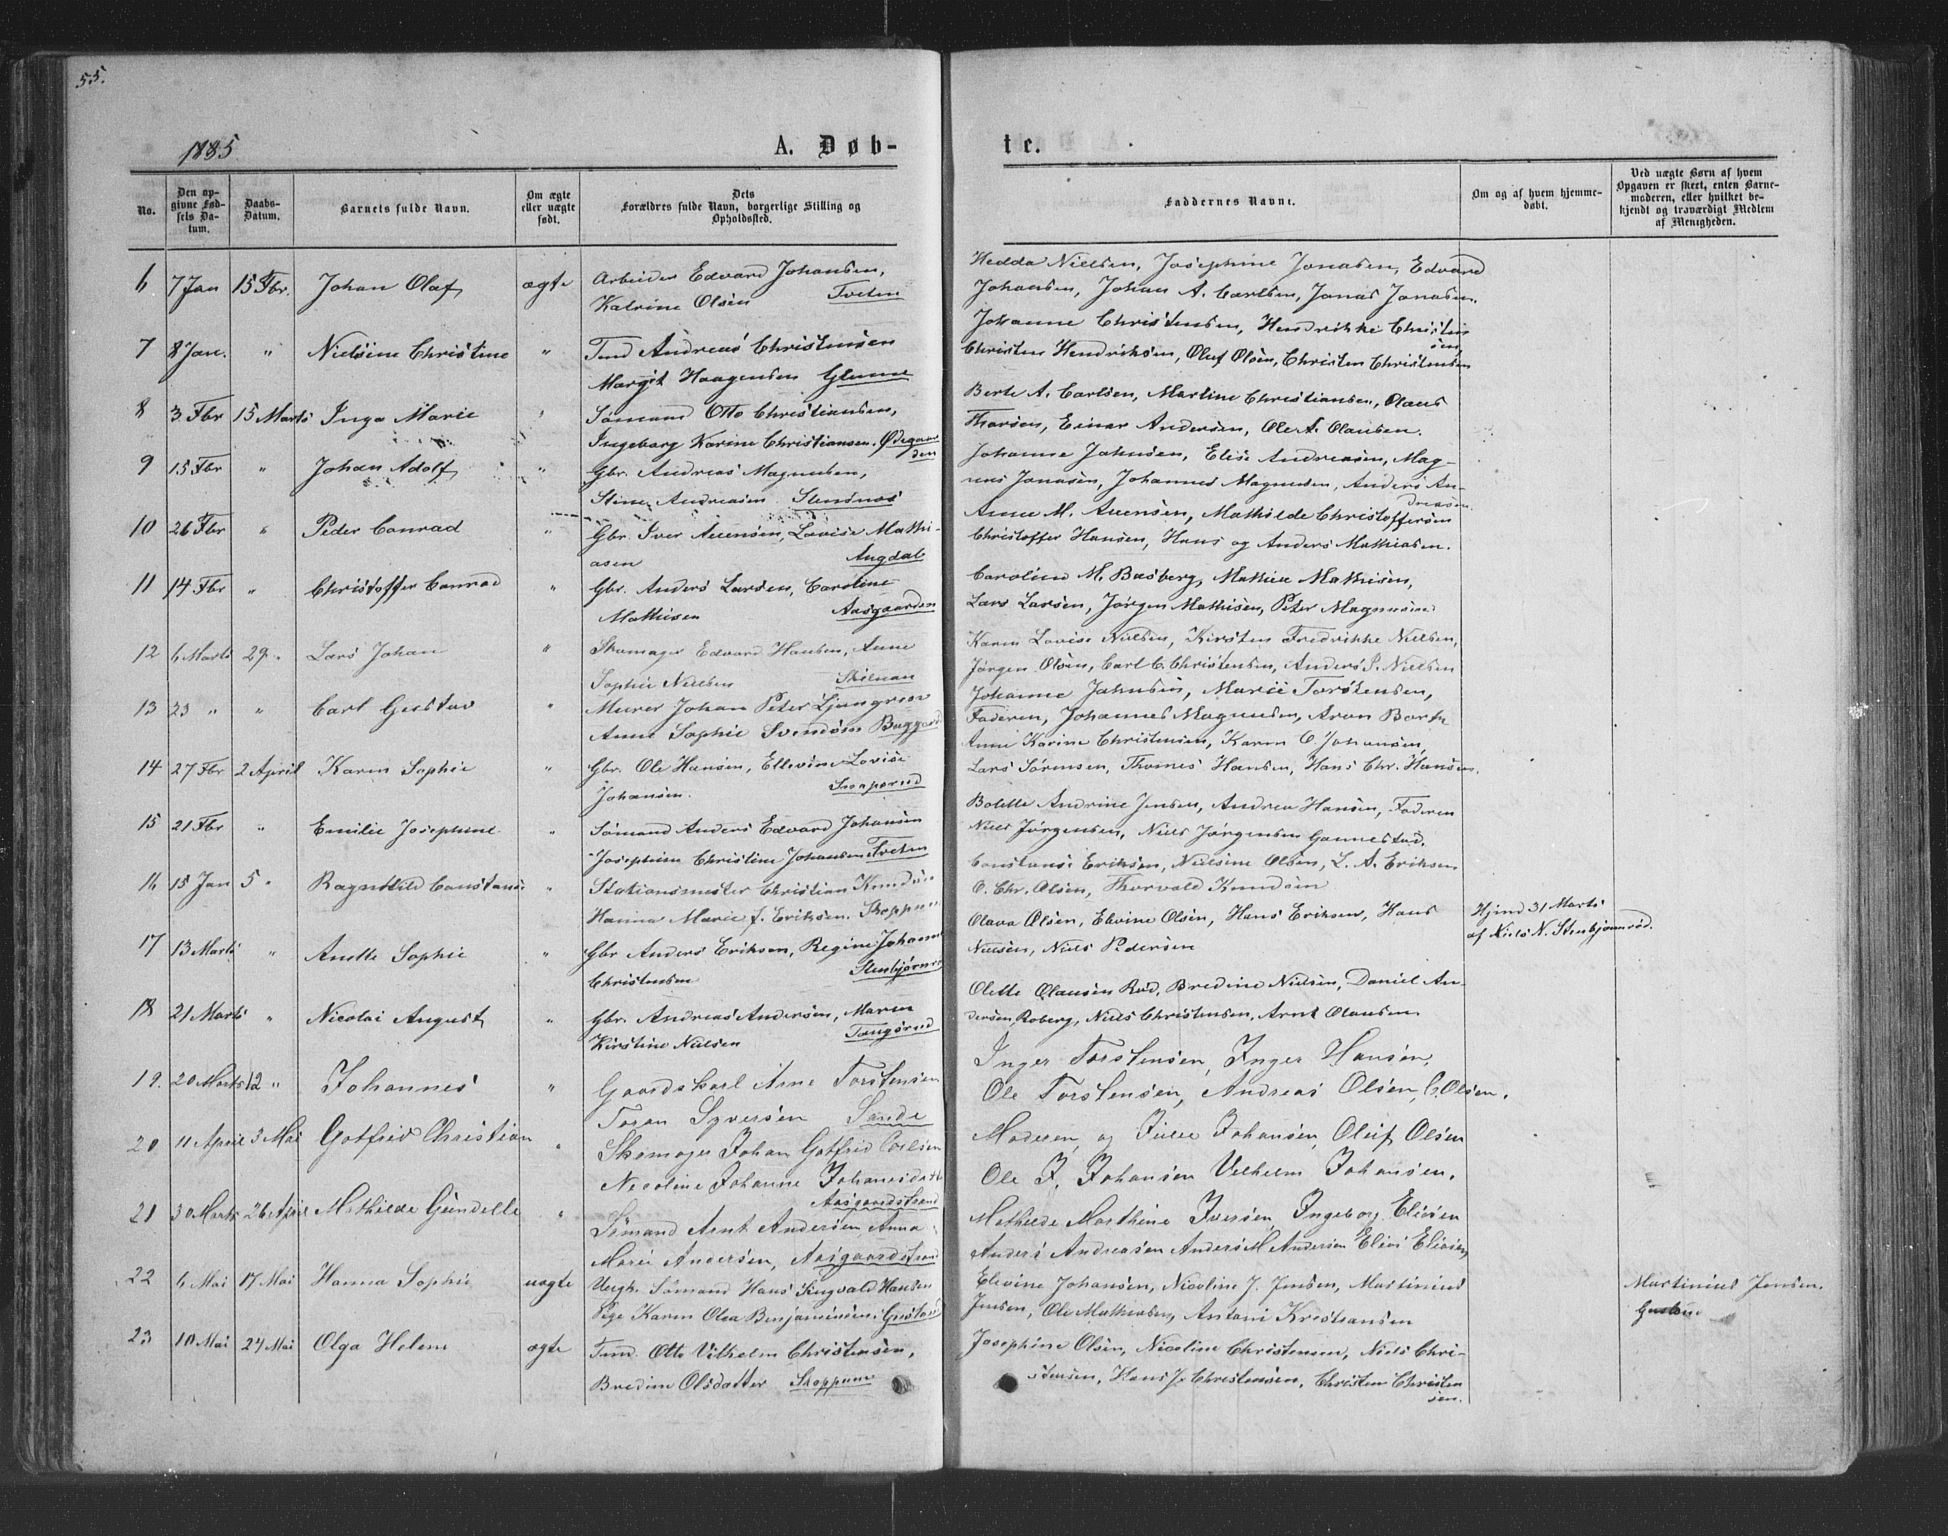 55.
1885
A. Døb-
te.
No.
Den op-
givne Fød-
sels Da-
tum.
Daabs-
Datum.
Barnets fulde Navn.
Om ægte
eller uægte
født.
Dets
Forældres fulde Navn, borgerlige Stilling og
Opholdssted.
Faddernes Navne.
Om og af hvem hjemme-
døbt.
Ved uægte Børn af hvem
Opgaven er skeet, enten Barne-
moderen, eller hvilket be-
kjendt og troværdigt Medlem
af Menigheden.
6 7 Jan 15 Fbr. Johan Olaf ægte Arbeider Edvard Johansen,
Katrine Olsen Tveten
Hedda Nielsen, Josephine Jonasen, Edvard
Johansen, Johan A. Carlsen, Jonas Jonasen.
7 8 Jan. " Nielsine Christine " Tmd Andreas Christensen
Margit Haagensen Glenne
Johanne Christensen, Hendrikke Christen
sen,
Christen Hendriksen, Oluf Olsen, Christen Christensen
8 3 Fbr 15 Marts Inga Marie " Sømand Otto Christiansen,
Ingeborg Karine Christiansen. Ødegaar
den
Berte A. Carlsen, Martine Christiansen, Olaus
Thorsen, Einar Andersen, Ole A. Olausen.
9 15 Fbr " Johan Adolf " Gbr. Andreas Magnusen,
Stine Andreasen Stensnæs
Johanne Johnsen, Elise Andreasen, Mag-
nus Jonasen, Johannes Magnusen, Anders An-
dreasen.
10 26 Fbr " Peder Conrad " Gbr. Iver Auensen, Lovise Mathi-
asen Augdal
Anne M. Auensen, Mathilde Christoffersen
Christoffer Hansen, Hans og Anders Mathiasen.
11 14 Fbr " Christoffer Conrad " Gbr. Anders Larsen, Caroline
Mathisen Aasgaarden
Caroline M. Basberg, Mathie Mathisen,
Lars Larsen, Jørgen Mathisen, Peter Magnusen
12 6 Marts 29 " Lars Johan " Skomager Edvard Hansen, Anne
Sophie Nielsen
Karen Lovise Nielsen, Kirsten Fredrikke Nielsen,
Jørgen Olsen, Carl C. Christensen, Anders P. Nielsen
13 23 " " Carl Gustav " Murer Johan Peter Ljungreen
Anne Sophie Svendsen
Johanne Johnsen, Marie Torstensen,
Faderen, Johannes Magnusen, Aron Barth
14 27 Fbr 2 April Karen Sophie " Gbr. Ole Hansen, Ellevine Lovise
Johansen. Snapsrud
Anne Karine Christensen, Karen O. Johansen,
Lars Sørensen, Thomes Hansen, Hans Chr. Hansen.
15 21 Fbr " Emilie Josephine " Sømand Anders Edvard Johansen
Josephine Christine Johansen Tveten
Bolette Andrine Jensen, Andrea Hansen, Faderen
Niels Jørgensen, Niels Jørgensen Gannestad.
16 15 Jan 5 " Ragnhild Constanse " Stationsmester Christian Knudsen
Hanna Marie f. Eriksen. Skoppum
Constanse Eriksen, Nielsine Olsen, L. A. Eriksen
O. Chr. Olsen, Thorvald Knudsen
17 13 Marts " Anette Sophie " Gbr Anders Eriksen, Regine Johanne
Christensen Stenbjørnrø
Olava Olsen, Elevine Olsen, Hans Eriksen, Hans
Nielsen, Niels Pedersen
Hjmd 31 Marts
af Niels N. Stenbjørnrød.
18 21 Marts " Nicolai August " Gbr. Andreas Andersen, Maren
Kirstine Nielsen Tangsrud
Olette Olausen Rød, Bredine Nielsen, Daniel An-
dersen Roberg, Niels Christensen, Arnt Olausen
19. 20 Marts 12 " Johannes " Gaardskarl Arne Torstensen
Toran Syversen Sande
Inger Torstensen, Inger Hansen,
Ole Torstensen, Andreas Olsen, C. Olsen.
20 11 April 3 Mai Gotfrid Christian " Skomager Johan Gotfrid Carlsen
Nicoline Johanne Johansdatter
Aasgaardstrand
Moderen, og Julie Johansen, Oluf Olsen
Ole J. Johansen Velhelm Johansen.
21 30 Marts 26 April Mathilde Gundelle " Sømand Arnt Andersen Anna
Marie Andersen, Aasgaardstrand
Mathilde Marthine Iversen Ingeborg Eliasen
Anders Andreasen Anders M. Andersen Elias Eliasen
22 6 Mai 17 Mai Hanna Sophie uægte Ungk. Sømand Hans Sigvald Hansen
Pige Karen Olea Benjaminsen,
Elevine Johansen, Nicoline J. Jensen, Martinius
Jensen, Ole Mathiasen, Antoni Kristiansen
Martinius Jensen.
23 10 Mai 24 Mai Olga Helene ægte Tmd. Otto Vilhelm Christensen,
Bredine Olsdatter Skoppum
Josephine Olsen, Nicoline Christensen, Niels Chri-
stensen, Hans J. Christensen, Christen Christen
sen.